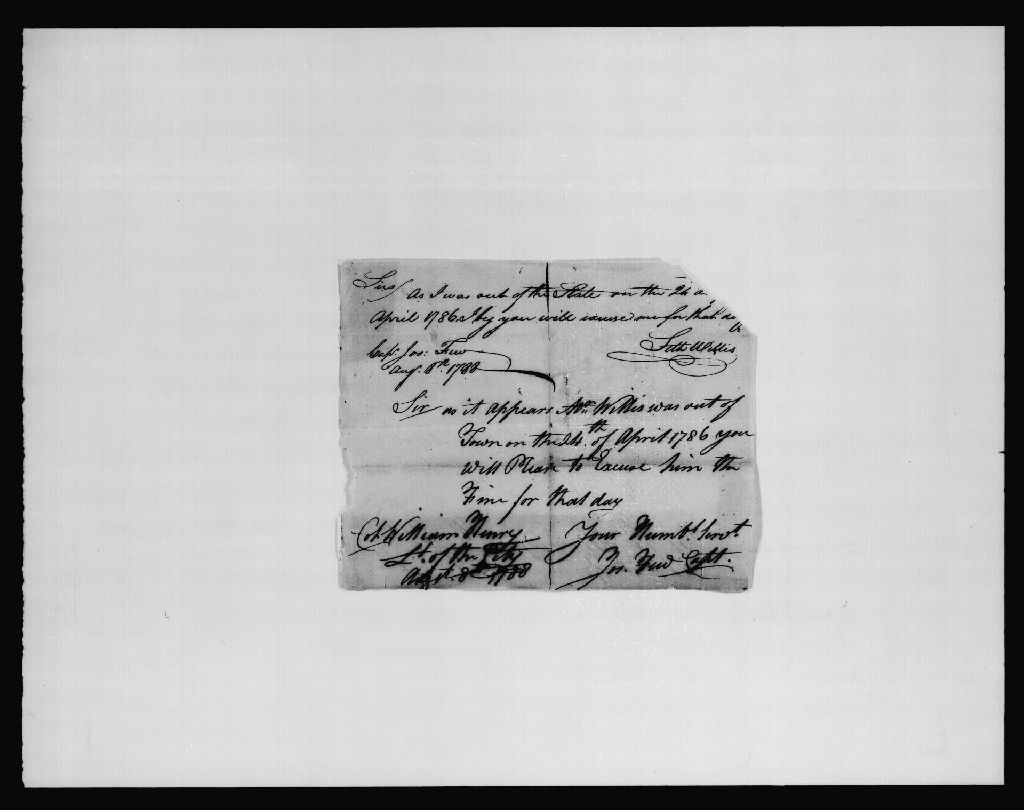 Sir
As I was out of the State on the 24
April 1786 I beg you will excuse me for that da
Seth Willis
Capt. Jos: Few
Augt. 8th. 1788
Sir as it appears Mr. Willis was out of
Town on the 24th. of April 1786 you
will Please to Excuse him the
Fine for that day
Col. William Henry
Lt. of the City
Augt. 8th 1788
Your Humbl. Servt.
Jos. Few Capt.